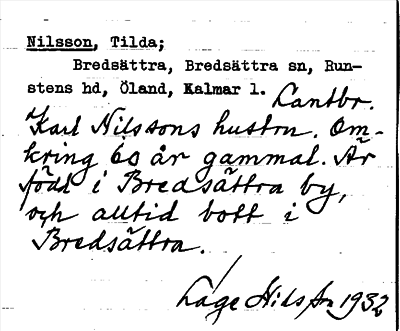 Nilsson, Tilda;
Bredsättra, Bredsättra sn, Run-
stens hd, Öland, Kalmar l.
Lantbr.
Karl Nilssons hustru. Om-
kring 60 år gammal. Är
född i Bredsättra by,
och alltid bott i
Bredsättra.
Lage Nilsson 1932